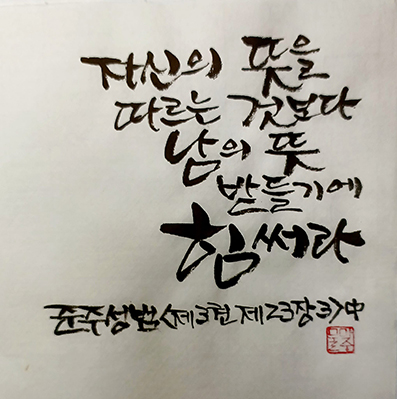 자신의 뜻을
따르는 것보다
남의 뜻
받들기에
힘써라
준주성범<제3권 제23장3>中